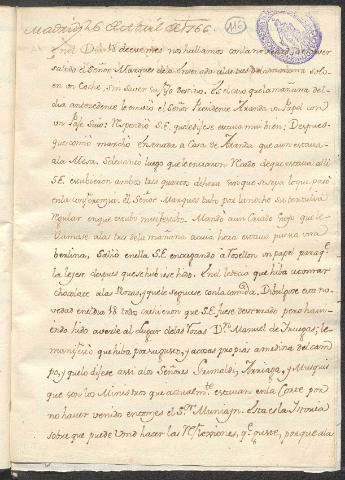 Madrid, 26 de Abril de 1766.
116
En el Dia 18 de este mes nos hallamos con la novedad de haver
salido el Señor Marques de la Ensenada a las tres de la mañana solo
en un Coche, sin saver su destino. Es cierto que la mañana del
dia antecedente le embio el Señor Presidente Aranda un Papel con
un Page suio: Respondio S.E. que le dijese estava mui bien: Despues
que comio marcho Ensenada a Casa de Aranda que aun estava
a la Mesa. Se levanto luego que le entraron Recado de que estava alli
S.E. estubieron ambos tres quartos de hora sin que se sepa lo que paso
en la conferencia. El Señor Marques tubo por la noche su tertulia
Regular en que estubo mui festivo. Mando a un Criado suyo que le
llamase a las tres de la mañana a cuia hora estava puesta una
berlina, salio en ella S.E. entregando a Rosellon un papel para q.e
le leyese despues que se hubiese hido. En el le decia que hiba a tomar
chocolate a las Rozas, y que le seguiese con la comida. Divulgose esta no-
vedad en el dia 18 todos creieron que S.E. fuese desterrado pero havi-
endo hido a verle al Lugar de las Rozas D.n Manuel de
manifesto que hiba por su gusto, y a cosas propias a medina del cam-
po, y que lo dijese assi a los Señores Grimaldi, Arriaga, y Muzquiz
que son los Ministros que actualm.te estavan en la Corte por
no haver venido entonzes el S.or Muniayn. Esta es la Historia
sobre que puede Vmd hacer las Reflexiones, q.e guste, porque a la